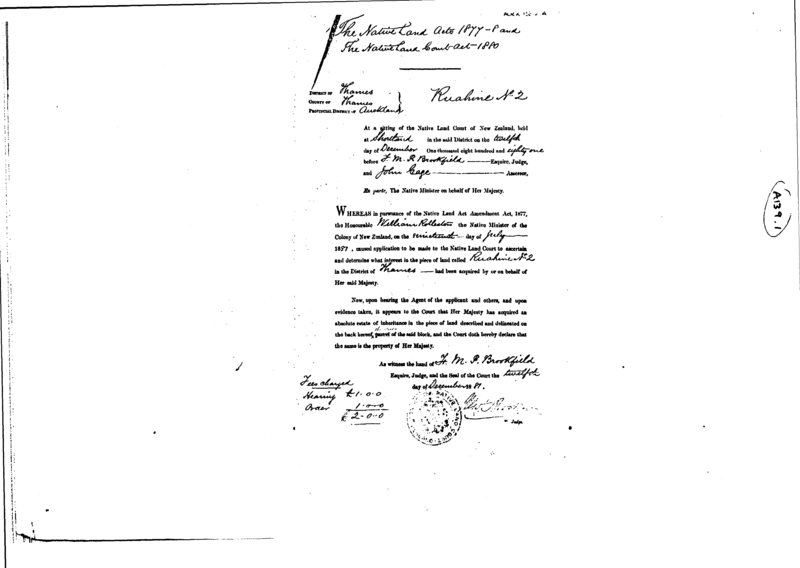 The Native Land Acts 1877-8 and
The Native Land Court Act-1880
DISTRICT OF Thames
COUNTY OF Thames
PROVINCIAL DISTRICT OF Auckland
Ruahine No 2
At a sitting of the Native Land Court of New Zealand, held
at Shortland in the said District on the twelfth
day of December One thousand eight hundred and eighty one
before H. M. P. Brookfield Esquire, Judge,
and John Gage Assessor.
Ex parte, The Native Minister on behalf of Her Majesty.
WHEREAS in pursuance of the Native Land Act Amendment Act, 1877,
the Honourable William Rolleston the Native Minister of the
Colony of New Zealand, on the nineteenth day of July
188?, caused application to be made to the Native Land Court to ascertain
and determine what interest in the piece of land called Ruahine No 2
in the District of Thames had been acquired by or on behalf of
Her said Majesty.
Now, upon hearing the Agent of the applicant and others, and upon
evidence taken, it appears to the Court that Her Majesty has acquired an
absolute estate of inheritance in the piece of land described and delineated on
the back hereof, parcel of the said block, and the Court doth hereby declare that
the same is the property of Her Majesty.
As witness the hand of H. M. P. Brookfield
Esquire, Judge, and the Seal of the Court the twelfth
day of December 1881.
Fees charged
Hearing £1.0.0
Order 1.0.0
£ 2.0.0
Judge.
A139.1